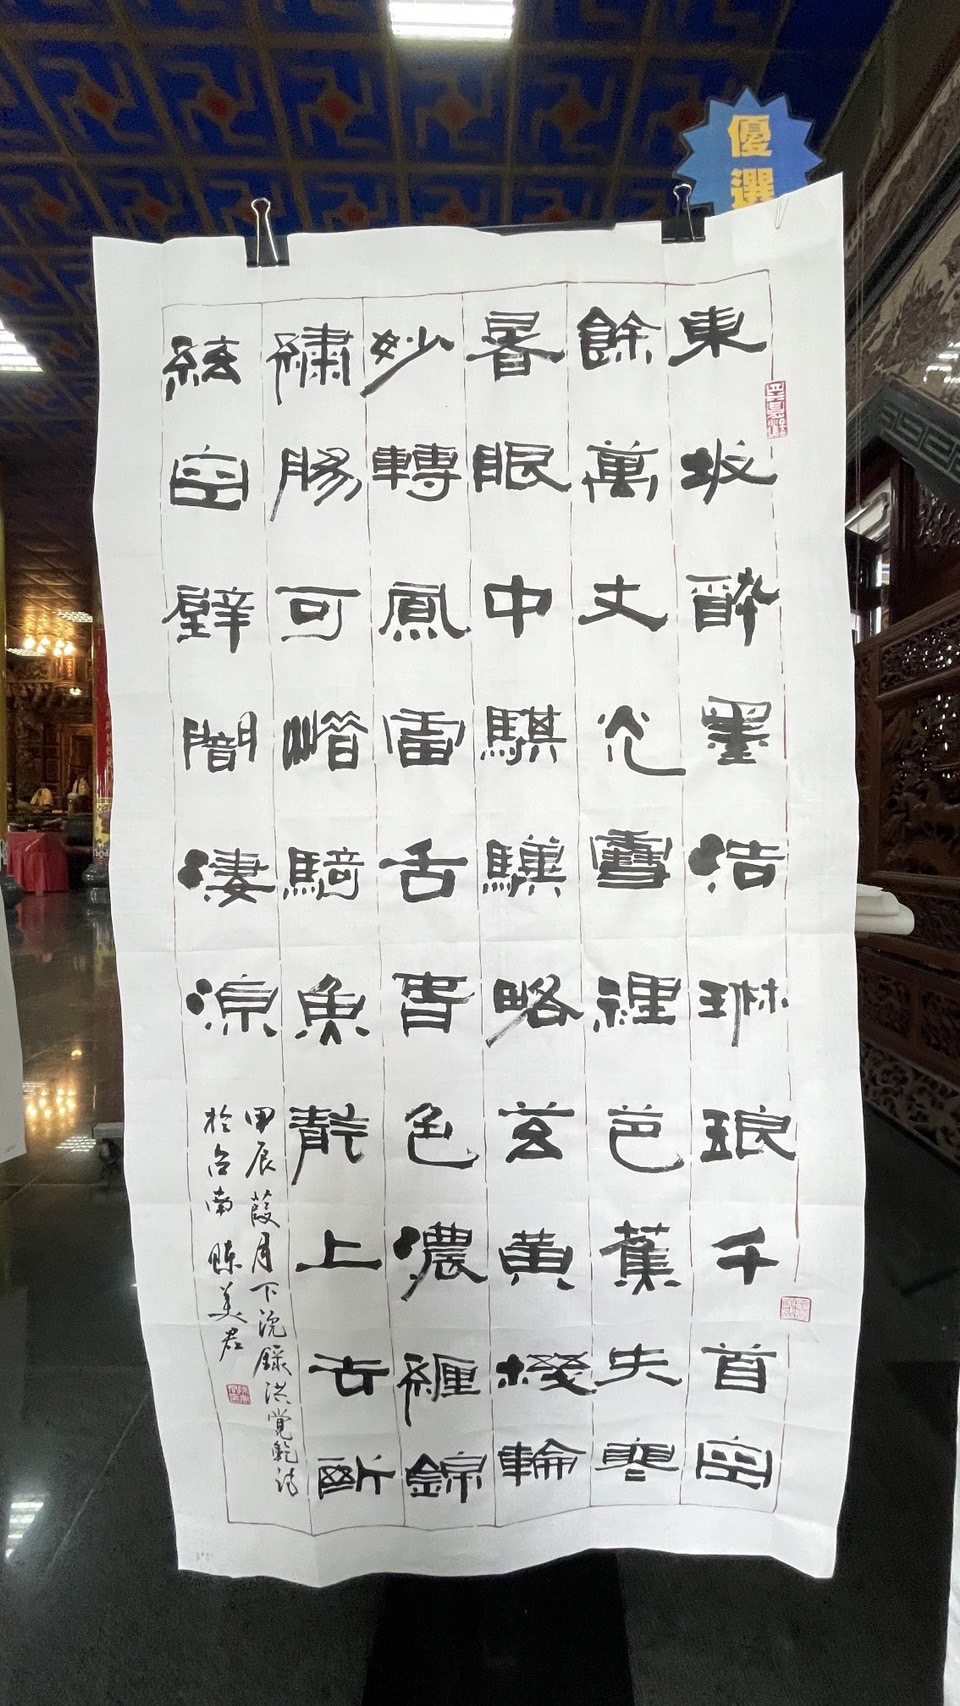 優選
東坡醉墨浩琳琅千首空
餘萬丈光雪裡芭蕉失寒
暑眼中騏驥略玄黃機輪
妙轉風雷舌春色濃纏錦
繡腸可惜騎魚天上去斷
絃空壁闇淒涼
甲辰葭月下浣錄洪覺範詩
於台南 陳美君